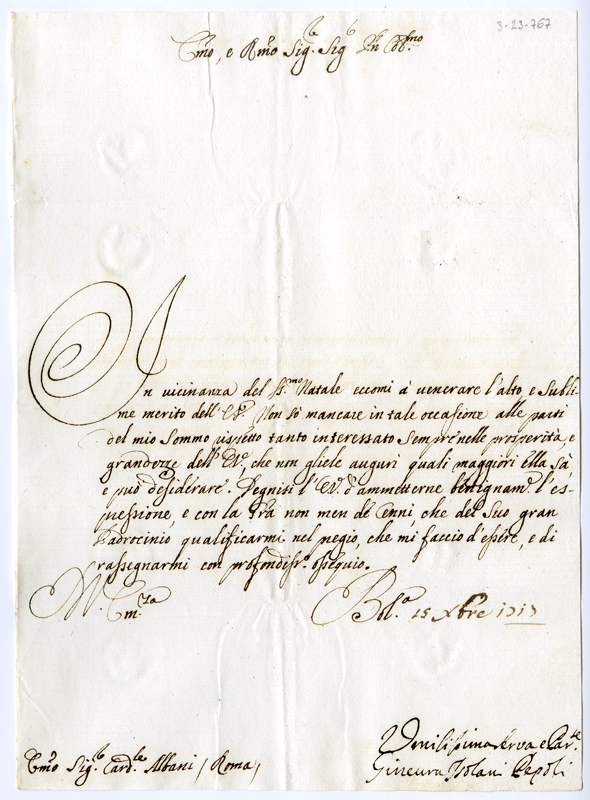 3-23-767
Em̃o, e Rm̃o Sig.re Sig.re Pñ Col.mo
In vicinanza del Ss.mo Natale eccomi à venerare l'alto, e subli-
me merito dell'E.V. Non sò mancare in tale occasione alle parti
del mio sommo rispetto tanto interessato sempre nelle prosperità, e
grandezze dell'E.V., che non gliele auguri quali maggiori ella sà,
e può desiderare. Degnisi l'E.V. d'ammetterne benignam.e l'es-
pressione, e con la Gra non men de Cenni, che del suo gran
Padrocinio qualificarmi nel pregio, che mi faccio d'essere, e di
rassegnarmi con profondiss.o ossequio.
V. Em.za
Bol.a 15 Xbre 1717
Umilissima Serva e Par.te
Ginevra Isolani Pepoli
Em̃o Sig.re Card.le Albani / Roma /